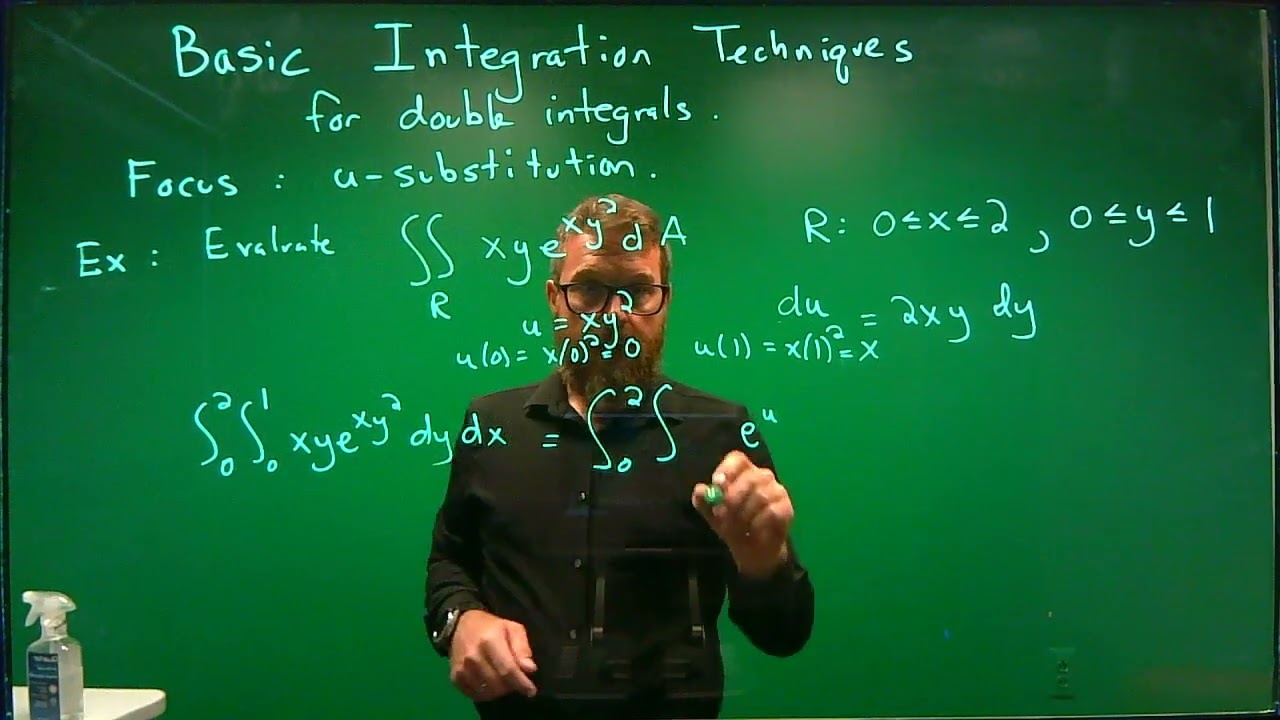 Basic Integration Techniques
for double integrals.
Focus: u-substitution.
Ex: Evaluate ∬_R xye^{xy²} dA R: 0≤x≤2, 0≤y≤1
u = xy² du = 2xy dy
u(0) = x(0)² = 0 u(1) = x(1)² = x
∫₀² ∫₀¹ xye^{xy²} dy dx = ∫₀² ∫ e^u